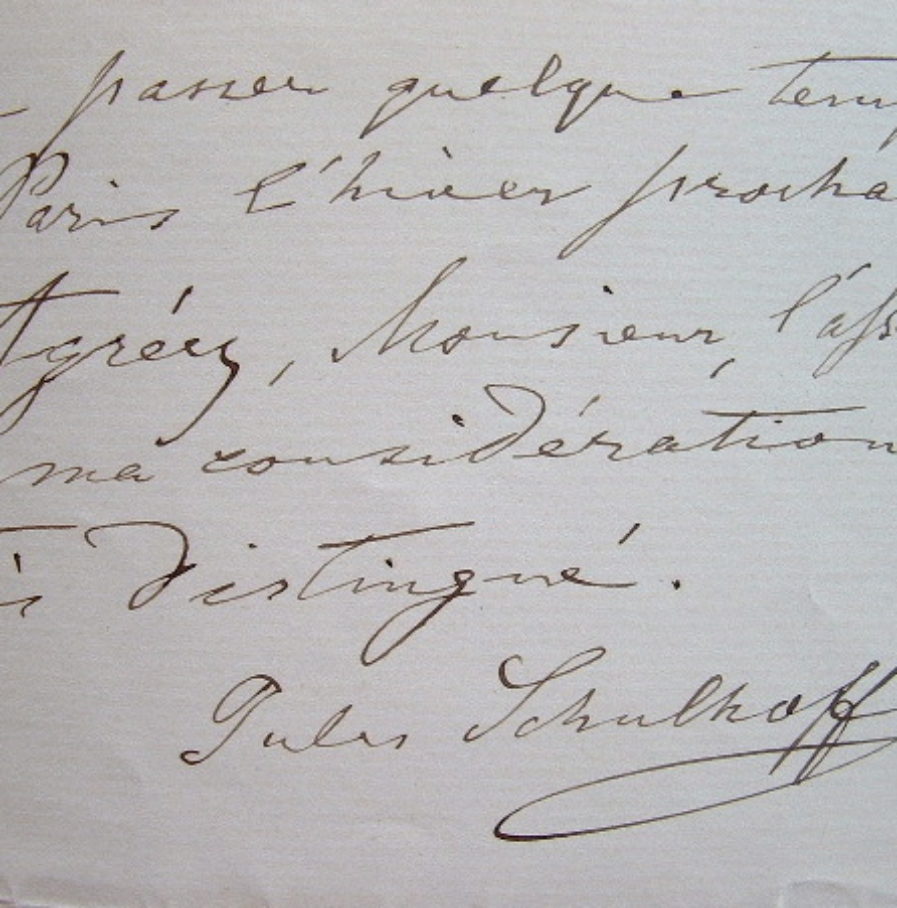 passer quelque temp
Paris l'hiver procha
Agréez, Monsieur, l'ass
ma considération
distingué.
Jules Schulhoff